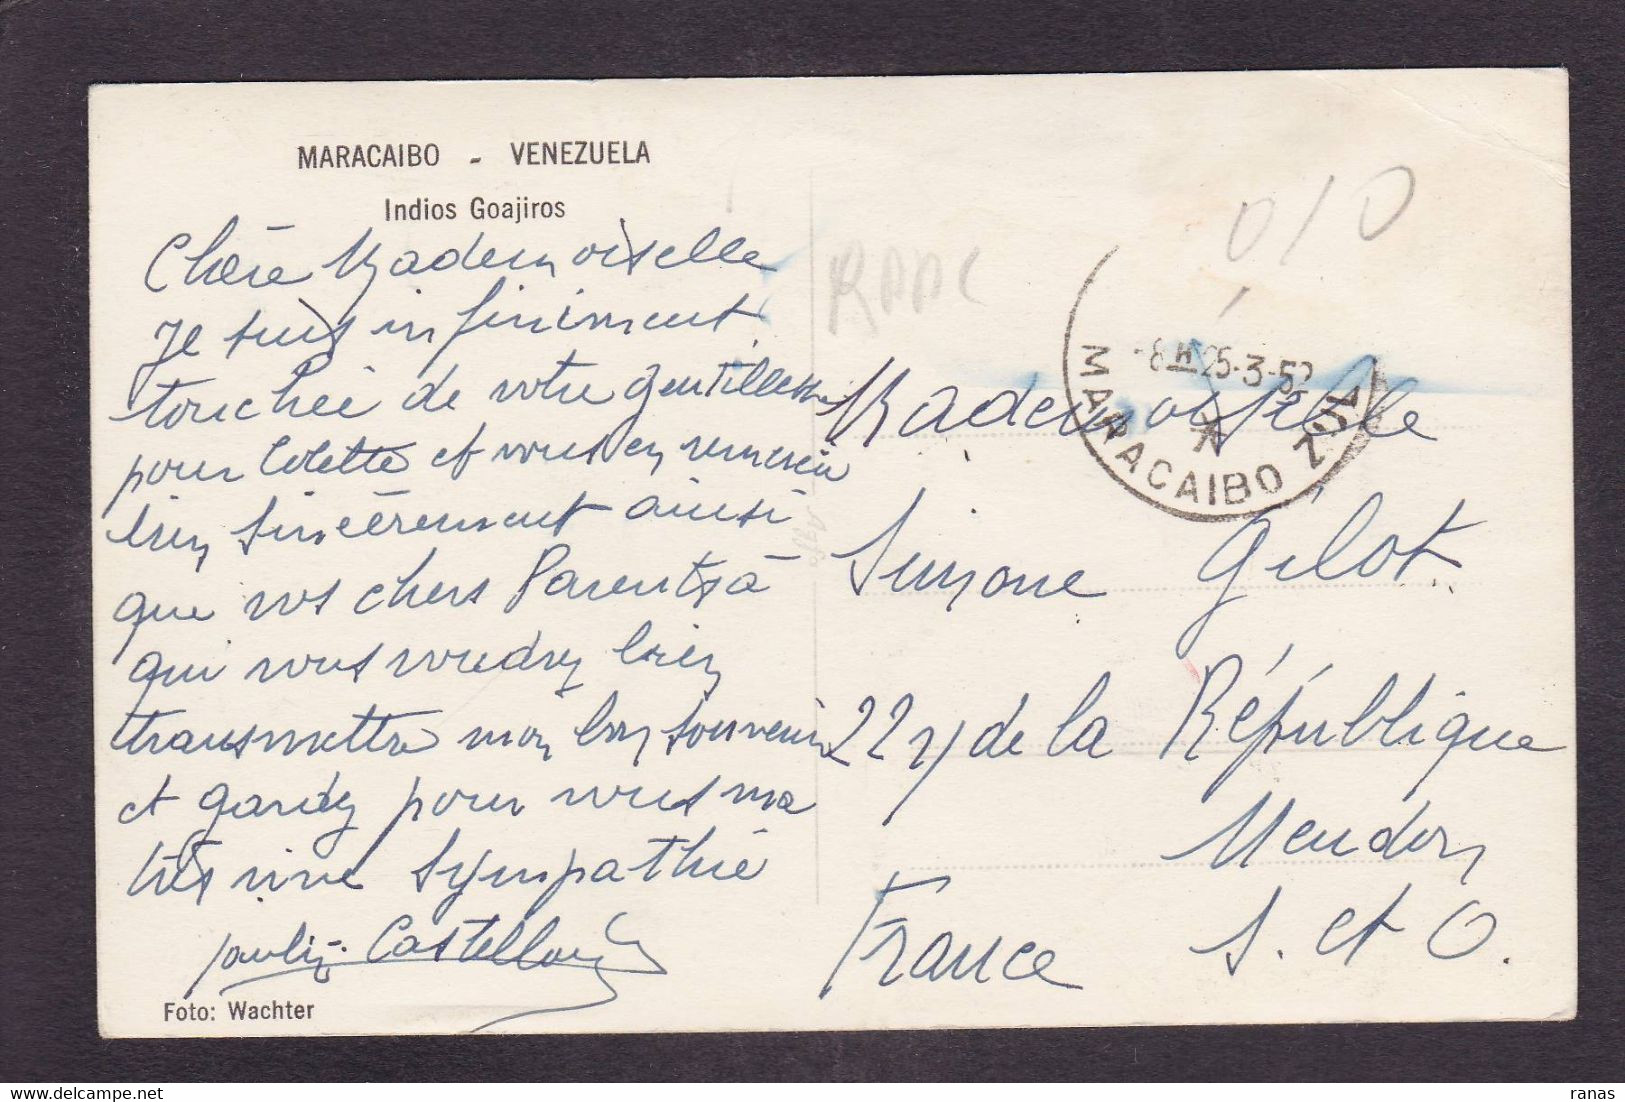 MARACAIBO - VENEZUELA
Indios Goajiros
Chère Mademoiselle
Je suis infiniment
touchée de votre gentillesse
pour Colette et vous en remercie
bien sincèrement ainsi
que vos chers Parents à
qui vous voudrez bien
transmettre mon bon souvenir
et gardez pour vous ma
très vive sympathie
Castellan
Foto: Wachter
0/0
8H 25-3-52
MARACAIBO
Mademoiselle
Simone Gilot
22 r de la République
Meudon
S. et O.
France
ranas